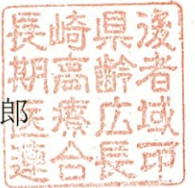 郎
長崎県後
期高齢者
医療広域
連合長印